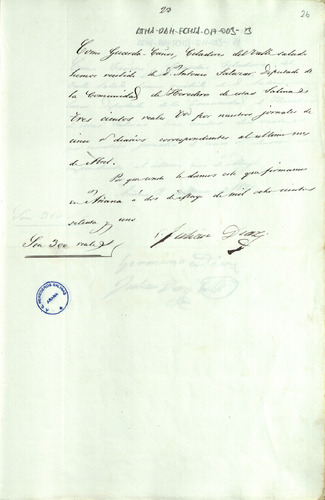 20
26
ATHA-DAH-FCHSA-019-003-13
Como Guarda-Caños, Celadores del Valle salado
hemos recibido de D. Antonio Salazar Diputado de
la Comunidad de Herederos de estas Salinas
tres cientos reales por nuestros jornales de
cinco diarios correspondientes al ultimo mes
de Abril.
Por que conste le damos este que firmamos
en Añana á dos de Mayo de mil ocho cientos
setenta y uno
Son 300 reales
Julian Diaz